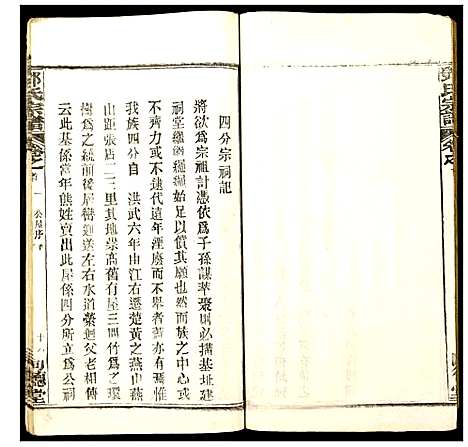 四分宗祠記
將欲爲宗祖計憑依爲子孫謀萃聚則必擴基址建
祠堂繩繩繼繼始足以償其願也然而族之中心
不齊力或不逮遠年湮廢而不舉者蓋亦有焉
我族四分自 洪武六年由江右遷楚黃之燕山燕
山距張店二三里其地崇高舊有屋三間竹爲之環
樹爲之統前後层巒遮左右水道縈迴父老相傳
云此基係當年熊姓賣出此屋係四分所立爲公祠
鄧氏宗譜
卷之首
公屋序